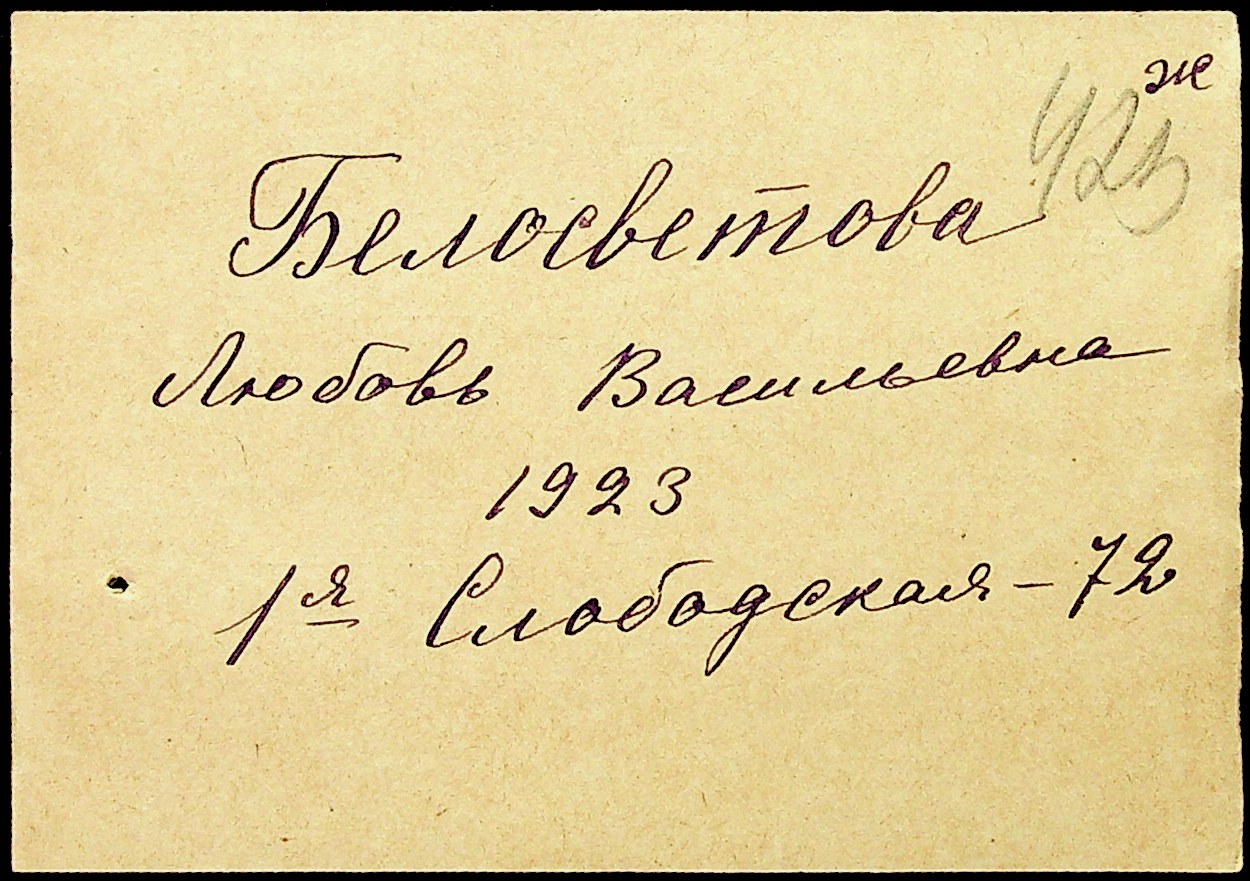 ж
Белосветова
Любовь Васильевна
1923
1я Слободская - 72